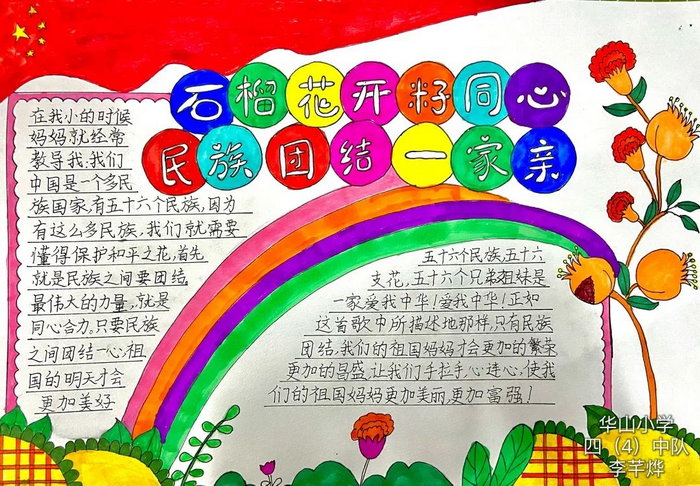 石榴花开籽同心
民族团结一家亲
在我小的时候
妈妈就经常
教导我,我们
中国是一个多民
族国家,有五十六个民族,因为
有这么多民族,我们就需要
懂得保护和平之花,首先
就是民族之间要团结,
最伟大的力量,就是
同心合力,只要民族
之间团结一心,祖
国的明天才会
更加美好
五十六个民族,五十六
支花,五十六个兄弟姐妹是
一家爱我中华!爱我中华!正如
这首歌中所描述地那样,只有民族
团结,我们的祖国妈妈才会更加的繁荣
更加的昌盛,让我们手拉手,心连心,使我
们的祖国妈妈更加美丽,更加富强!
华山小学
四（4）中队
李芊烨